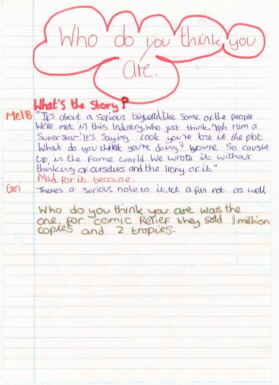 Who do you think you
are.
What's the Story?
Mel B "It's about a serious like some of the people
We're met in this industry who just think "Yeh I'm a
Superstar" It's Saying Look you've lost the plot
What do you think you're doing? You're So caught
up, in the Fame world We wrote it without
thinking of ourselves and the Irony of it"
Mad for it because.
Geri There's a Serious note to it, but a fun not as well
Who do you think you are was the
one for comic Relief they sold 1 million
copies and 2 tropies.